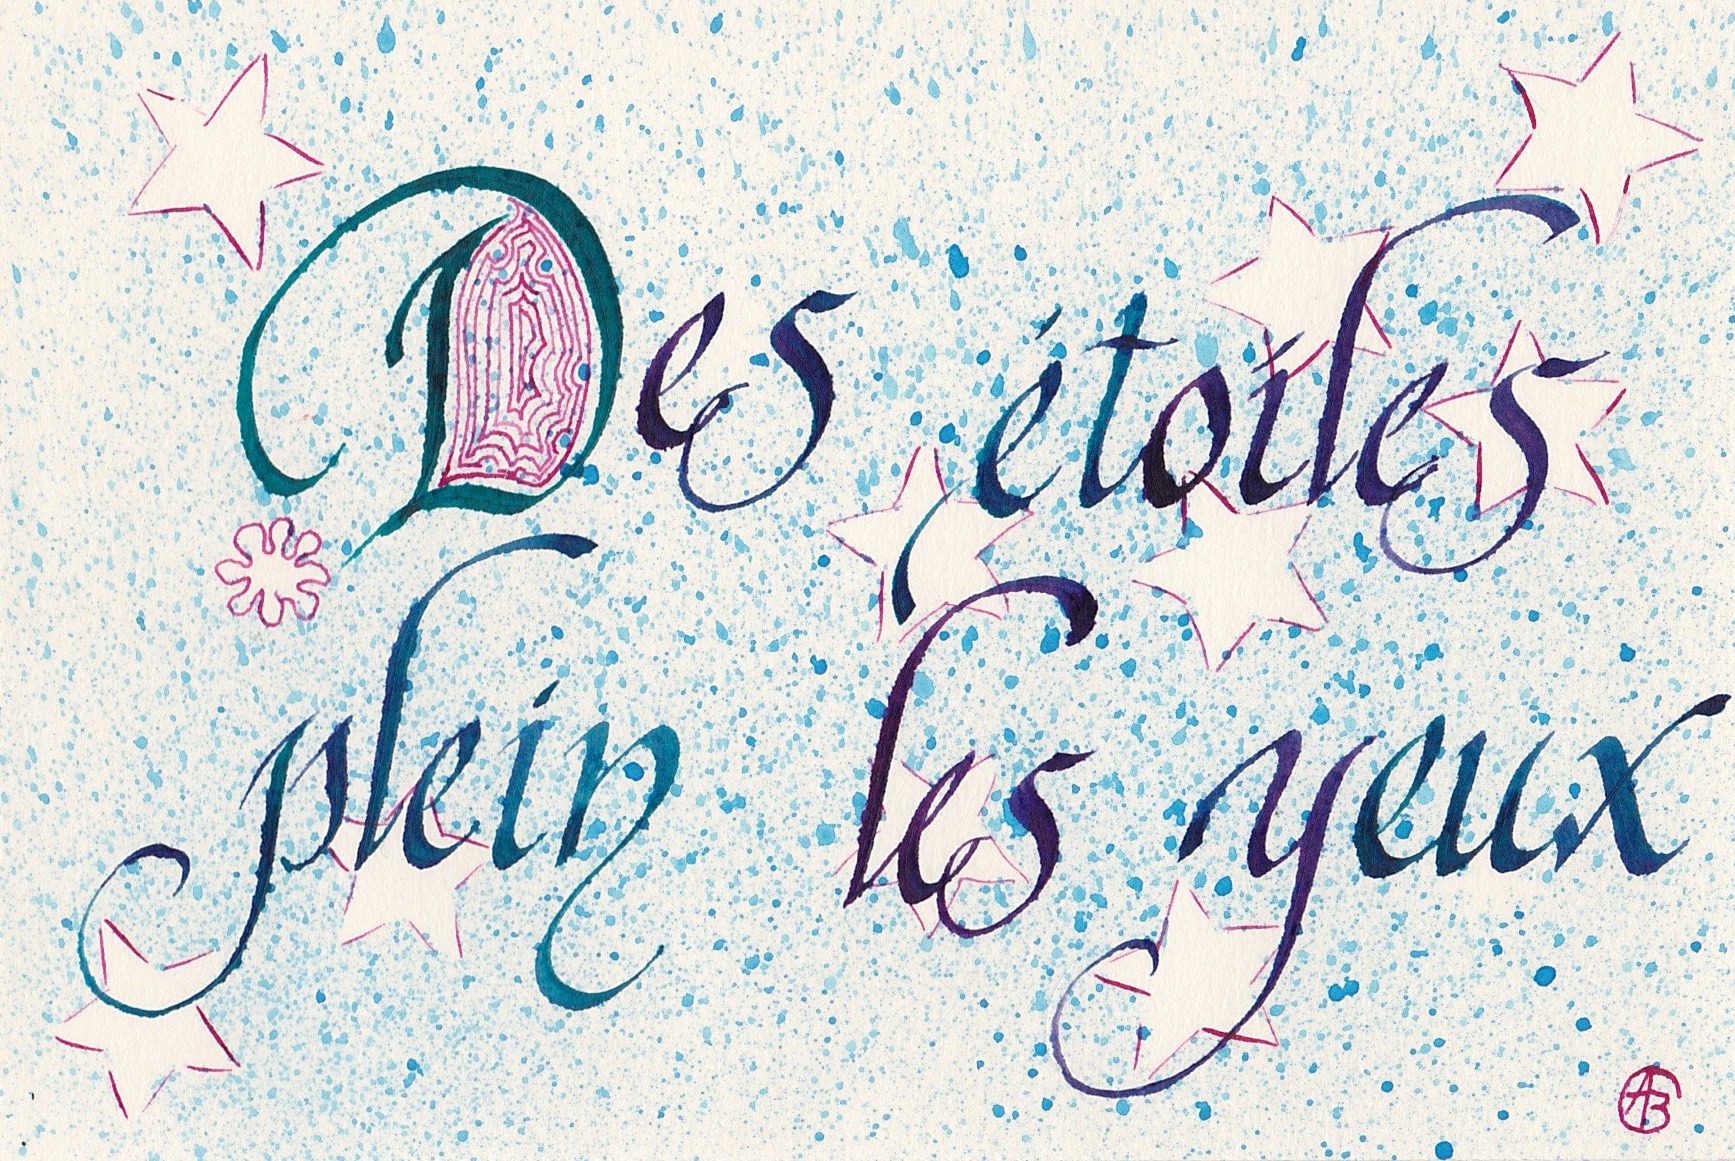 Des étoiles
plein les yeux
AB